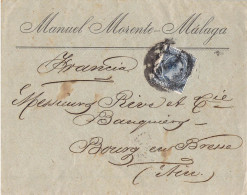 Manuel Morente - Málaga
Francia
Messieurs Rève et Cie
Banquiers
Bourg en Bresse
(Ain)